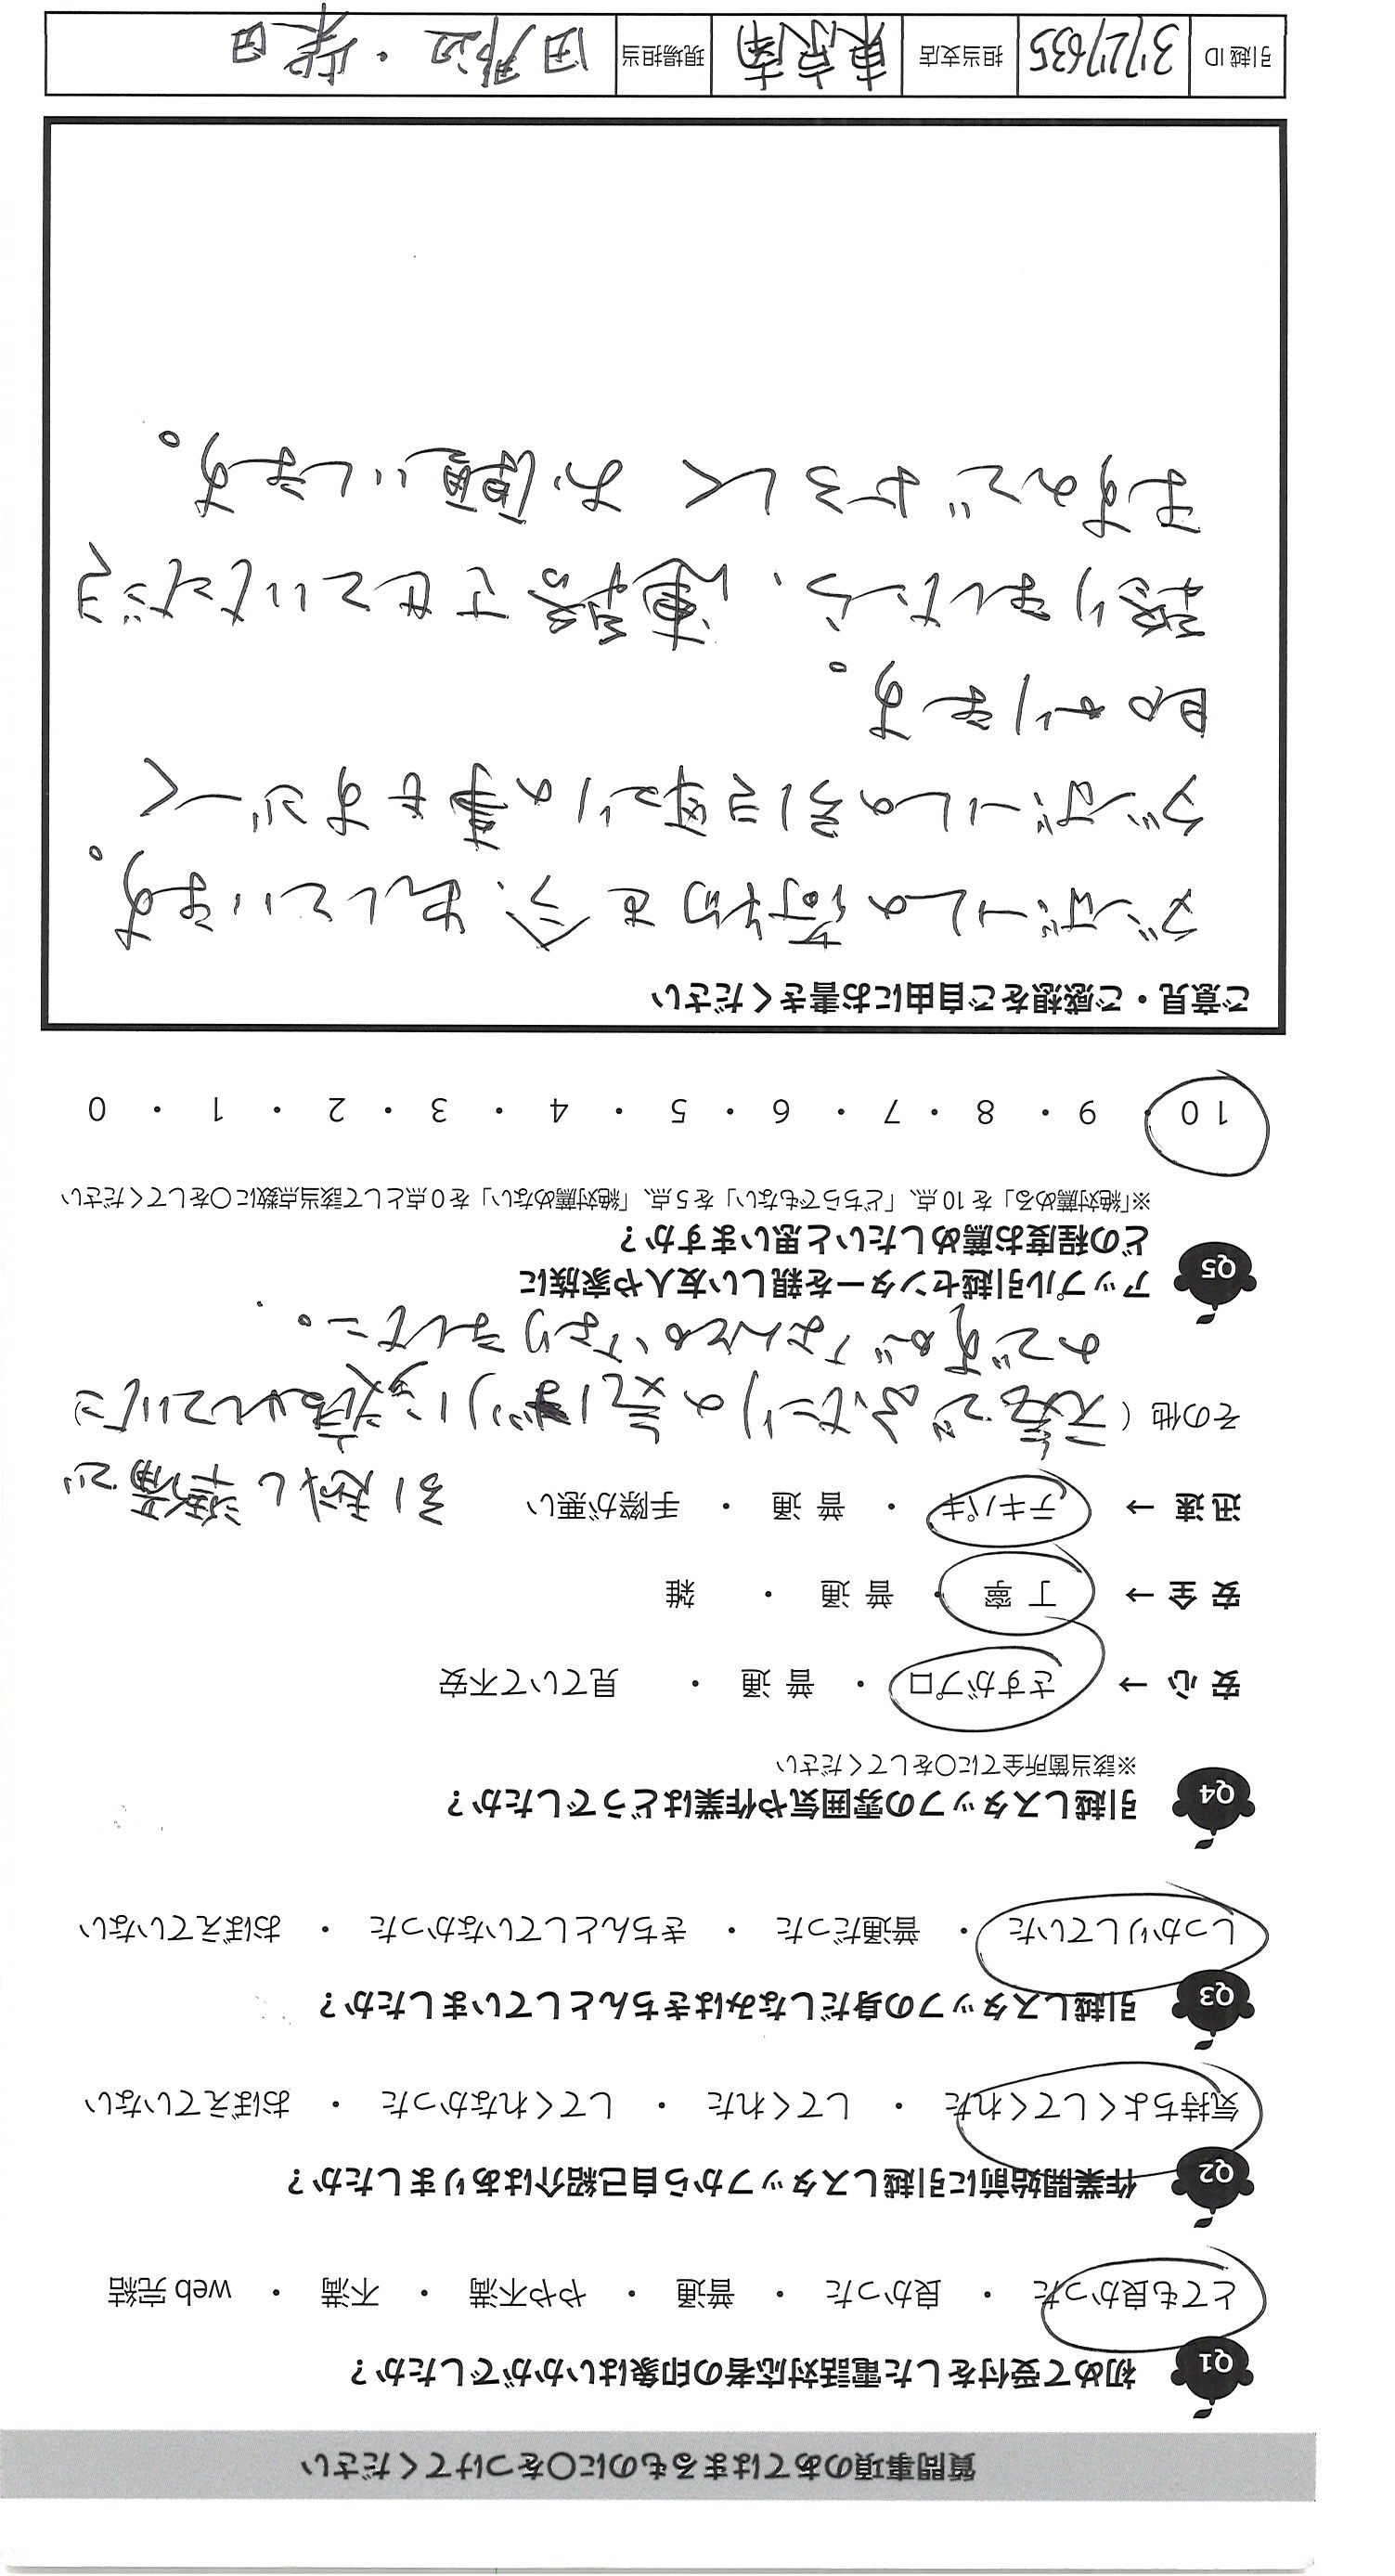 質問事項のあてはまるものに〇をつけてください
Q1 初めて受付をした電話対応者の印象はいかがでしたか？
とても良かった ・ 良かった ・ 普通 ・ やや不満 ・ 不満 ・ web完結
Q2 作業開始前に引越しスタッフから自己紹介はありましたか？
気持ちよくしてくれた ・ してくれた ・ してくれなかった ・ おぼえていない
Q3 引越しスタッフの身だしなみはきちんとしていましたか？
しっかりしていた ・ 普通だった ・ きちんとしていなかった ・ おぼえていない
Q4 引越しスタッフの雰囲気や作業はどうでしたか？
※該当箇所全てに〇をしてください
安心→ さすがプロ ・ 普通 ・ 見ていて不安
安全→ 丁寧 ・ 普通 ・ 雑
迅速→ テキパキ ・ 普通 ・ 手際が悪い
引越し準備で
その他（元気でふたりの気
のですがなんとかなりました。
Q5 アップル引越センターを親しい友人や家族に
どの程度お薦めしたいと思いますか？
※「絶対薦める」を10点、「どちらでもない」を5点、「絶対薦めない」を0点として該当点数に〇をしてください
10 ・ 9 ・ 8 ・ 7 ・ 6 ・ 5 ・ 4 ・ 3 ・ 2 ・ 1 ・ 0
ご意見・ご感想をご自由にお書きください
ダンボールの荷物を今、出しています。
ダンボールの引き取りの事もすごーく
助かります。
終りましたら、連絡させていただき
ますのでよろしくお願いします。
引越ID 3727635 担当支店 東京南 現場担当 田那辺・柴田